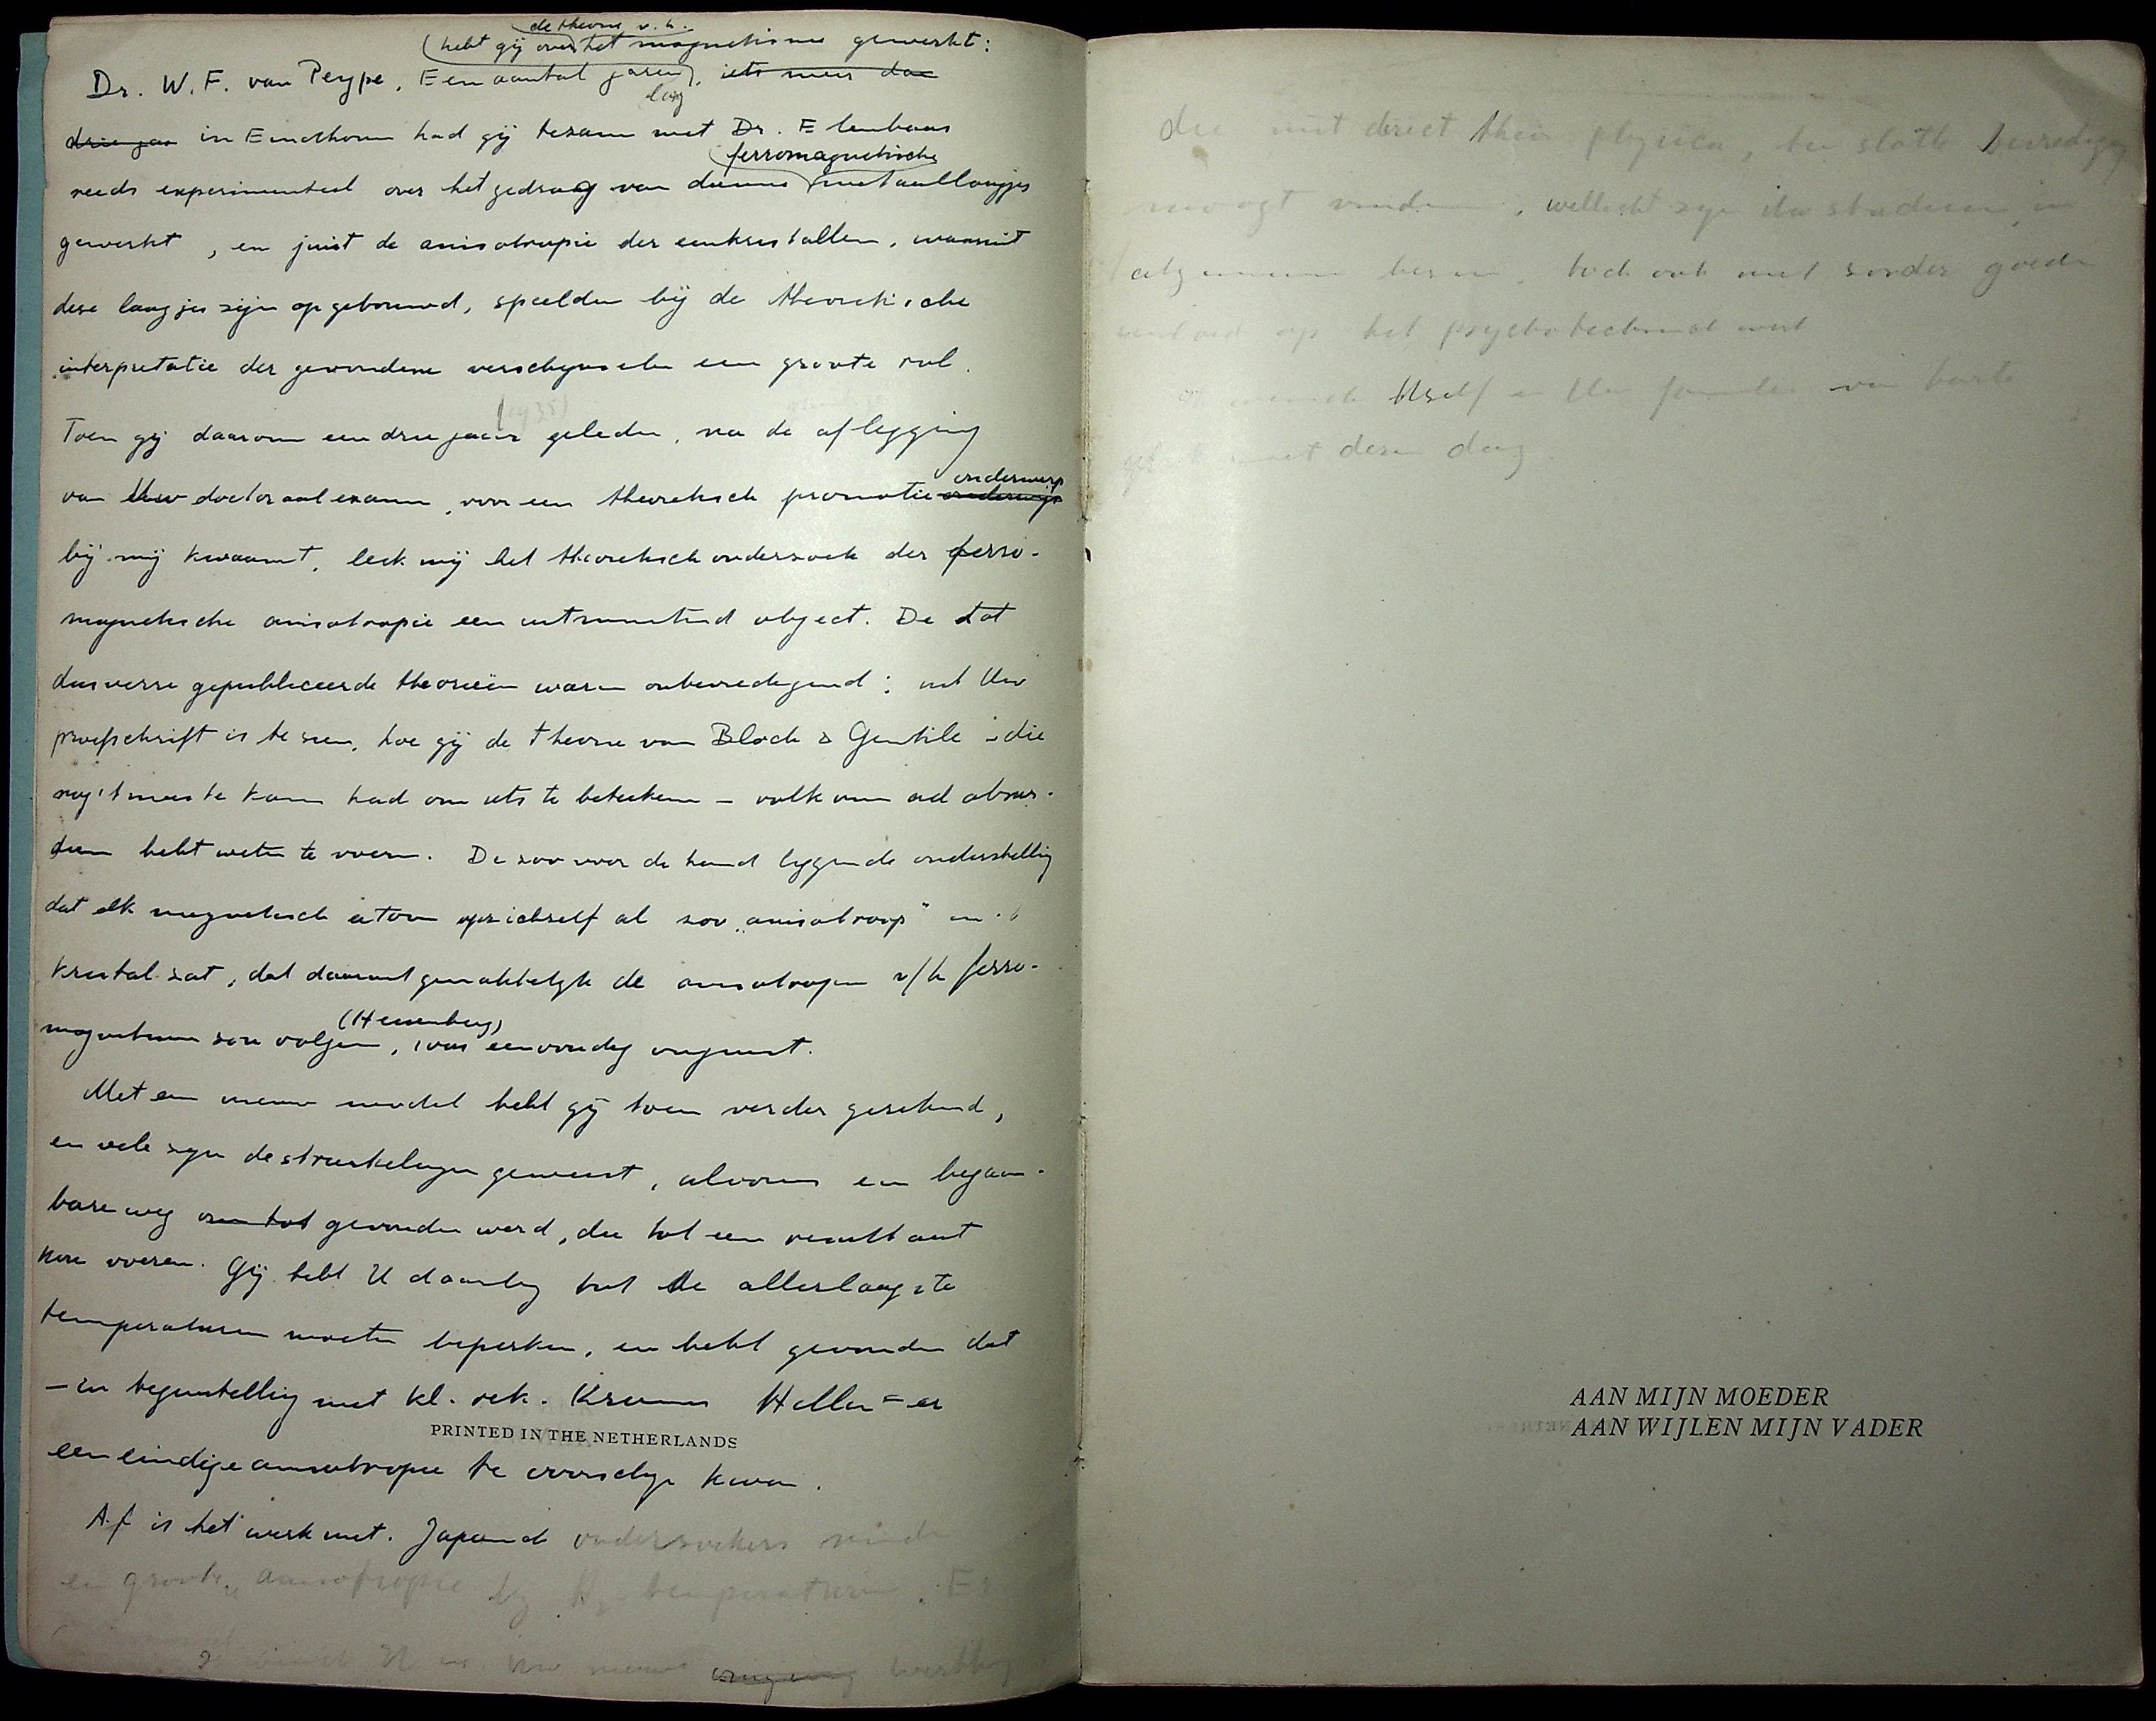 de theorie v. h.
hebt gij over het magnetisme gewerkt:
Dr. W. F. van Peype, Een aantal jaren, iets meer dan
lag
drie jaar in Eindhoven had gij tezamen met Dr. Elenbaas
ferromagnetische
reeds experimenteel over het gedrag van dunne metaallaagjes
gewerkt, en juist de anisotropie der eenkristallen, waaruit
deze laagjes zijn opgebouwd, speelden bij de theoretische
interpretatie der gevonden verschijnselen een groote rol.
(1935)
Toen gij daarom een drie jaar geleden, na de aflegging
onderwerp
van Uw doctoraal examen, voor een theoretisch promotie onderwerp
bij mij kwaamt, leek mij het theoretisch onderzoek der ferro-
magnetische anisotropie een uitmuntend object. De tot
dusverre gepubliceerde theorieën waren onbevredigend; uit Uw
proefschrift is te zien, hoe gij de theorie van Bloch & Gentile – die
nog 't meeste kans had om iets te beteekenen – volkomen ad absur-
dum hebt weten te voeren. De zoo voor de hand liggende onderstelling
dat elk magnetisch atoom op zichzelf al zoo „anisotroop" in 't
kristal zat, dat daaruit gemakkelijk de anisotropie v/h ferro-
(Heisenberg)
magnetisme zou volgen, was eenvoudig onjuist.
Met een nieuw model hebt gij toen verder gerekend,
en vele zijn de struikelingen geweest, alvorens een begaan-
bare weg om tot gevonden werd, die tot een resultaat
kon voeren. Gij hebt U daarbij tot de allerlaagste
temperaturen moeten beperken, en hebt gevonden dat
– in tegenstelling met kl. rek. Kramers Heller = er
PRINTED IN THE NETHERLANDS
een eindige anisotropie te voorschijn kwam.
Af is het werk niet. Japansch onderzoekers vinden
en groote anisotropie bij H2 temperaturen. Er
U Uw nieuwe omgeving werkkring
die niet direct theor physica, ten slotte bevrediging
moogt vinden, wellicht zijn Uw studieen, in
algemeene toch ook niet zonder goede
invloed op het psychotechnisch werk
wensch Uzelf en Uw familie van harte
geluk met dezen dag
AAN MIJN MOEDER
AAN WIJLEN MIJN VADER